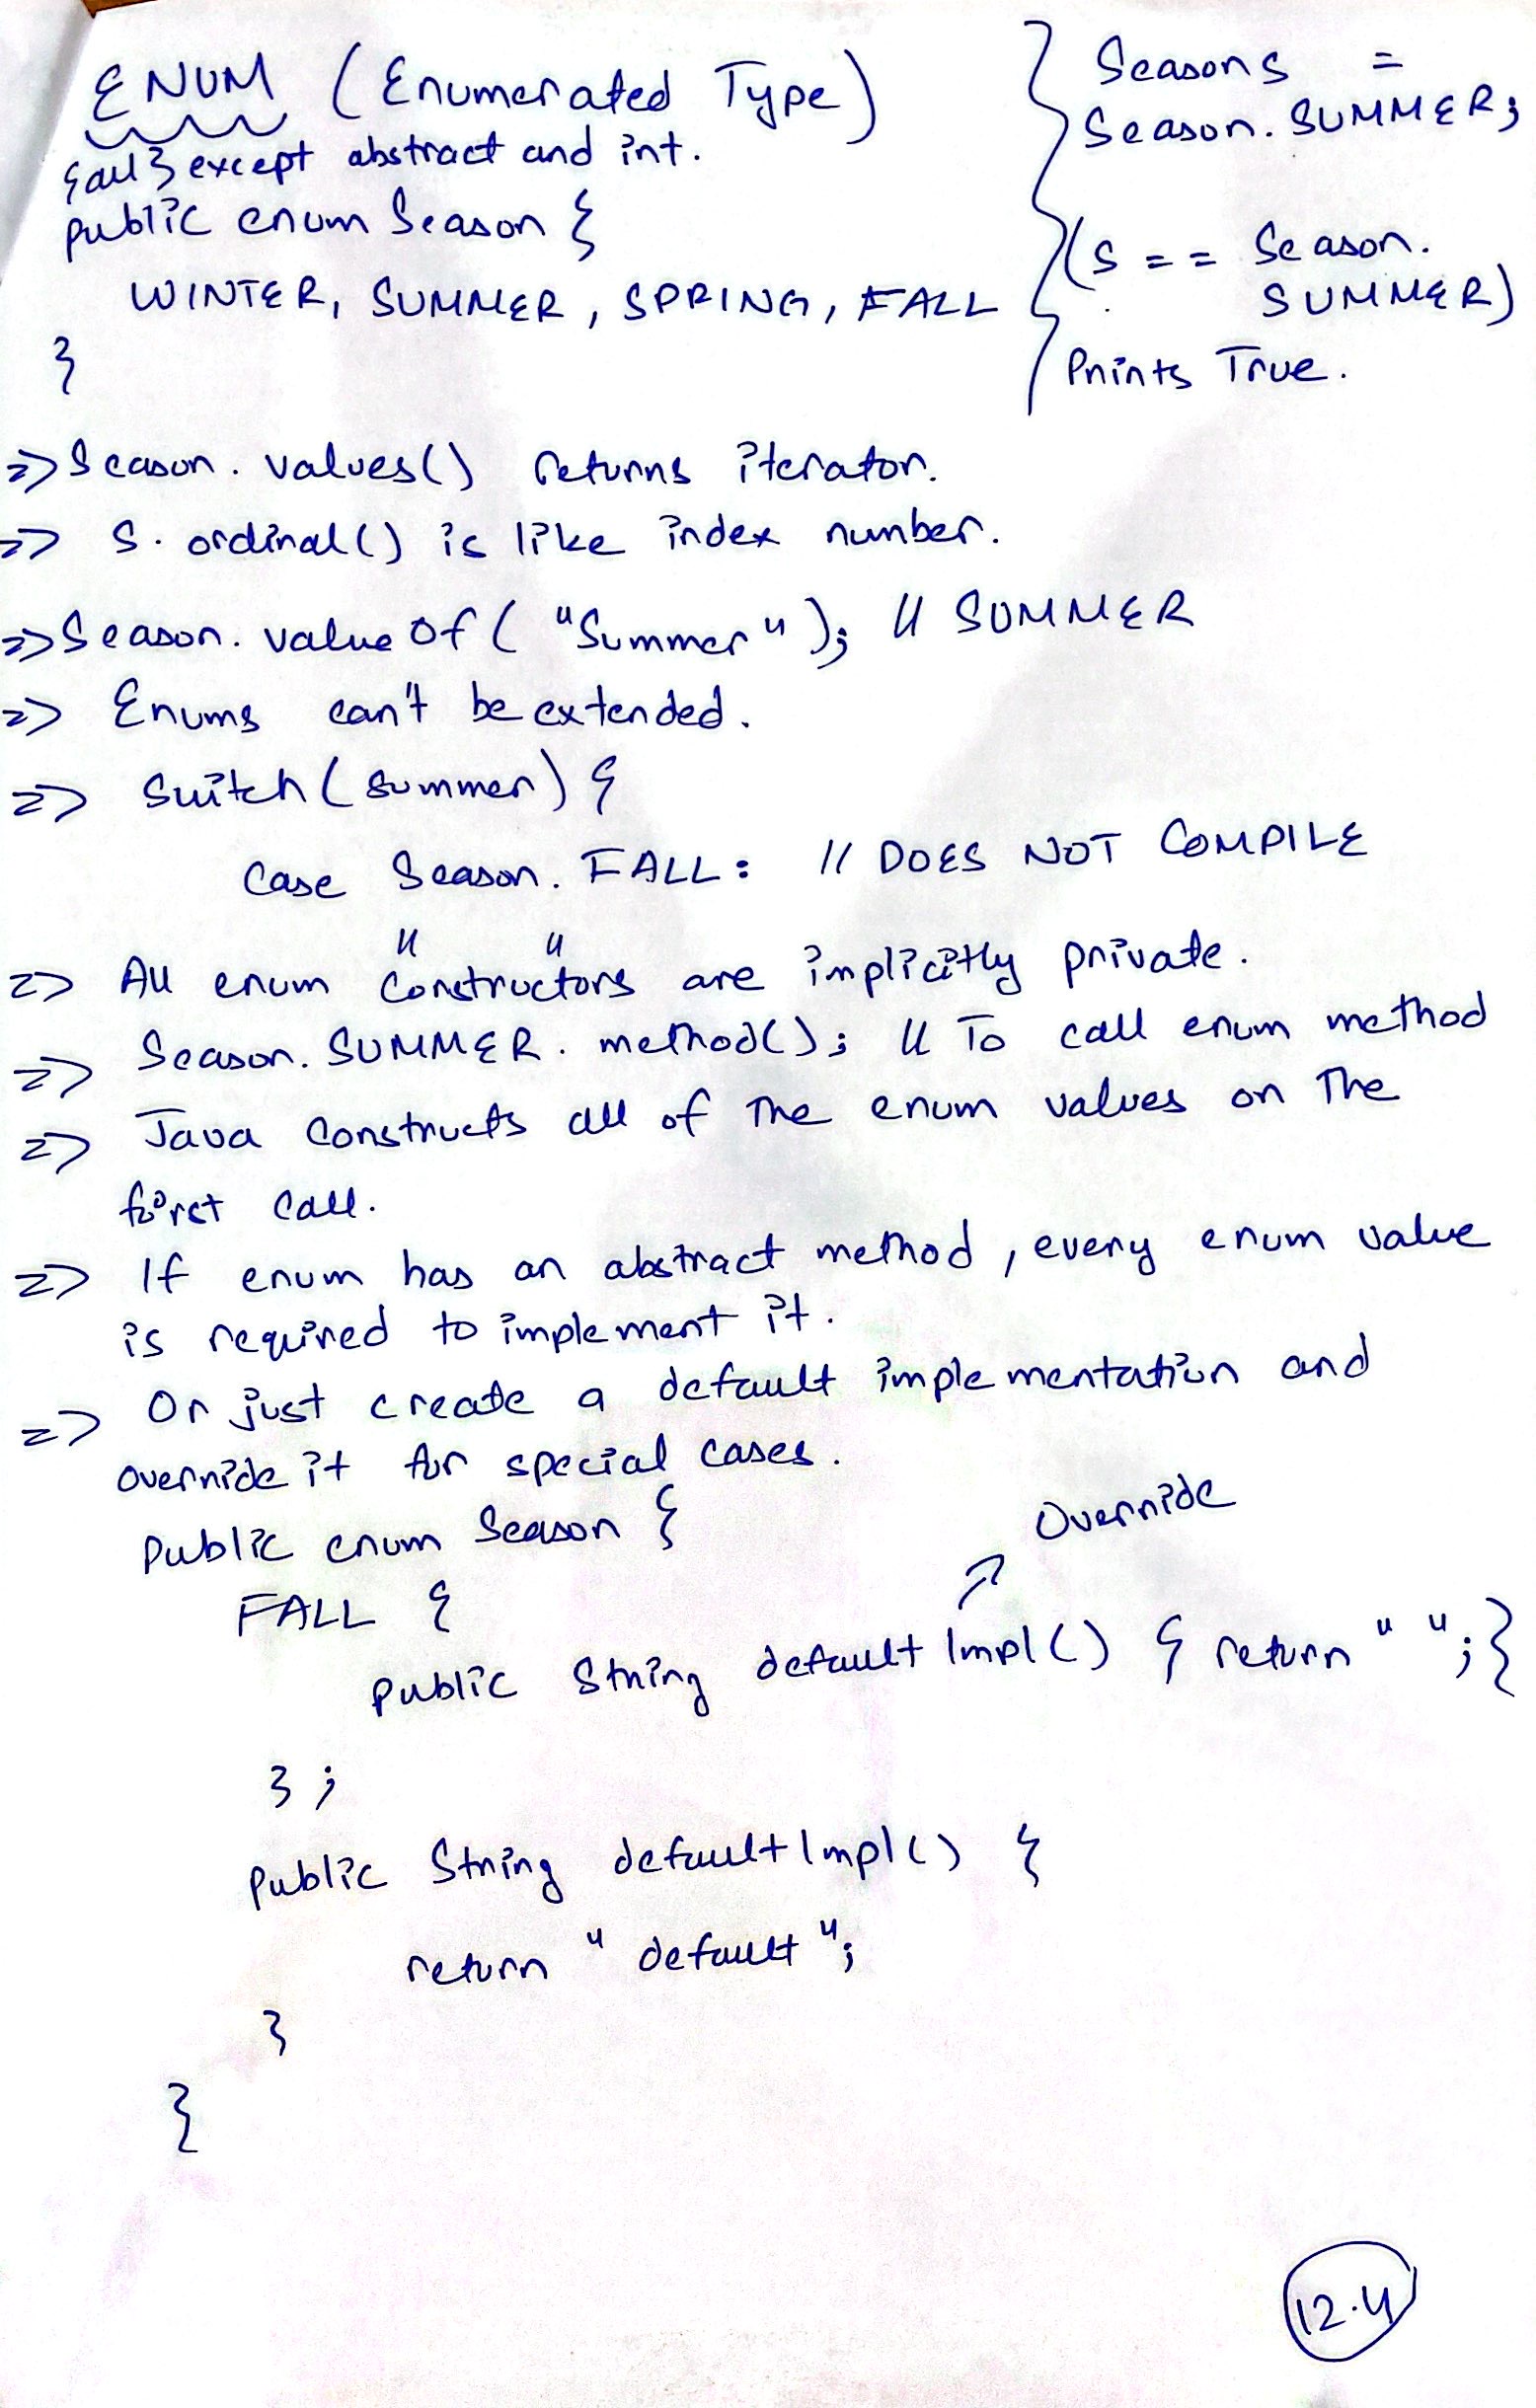 ENUM (Enumerated Type)
{all} except abstract and int.
public enum Season {
WINTER, SUMMER, SPRING, FALL
}
Season s =
Season.SUMMER;
(s == Season.
SUMMER)
Prints True.
=> Season.values() returns iterator.
=> s.ordinal() is like index number.
=> Season.valueOf("Summer"); // SUMMER
=> Enums can't be extended.
=> Switch(summer) {
Case Season.FALL: // DOES NOT COMPILE
=> All enum "Constructors" are implicitly private.
=> Season.SUMMER.method(); // To call enum method
=> Java Constructs all of the enum values on the
first call.
=> If enum has an abstract method, every enum value
is required to implement it.
=> Or just create a default implementation and
override it for special cases.
Public enum Season {
FALL {
Override
public String defaultImpl() { return " "; }
};
public String defaultImpl() {
return "default";
}
}
12.4